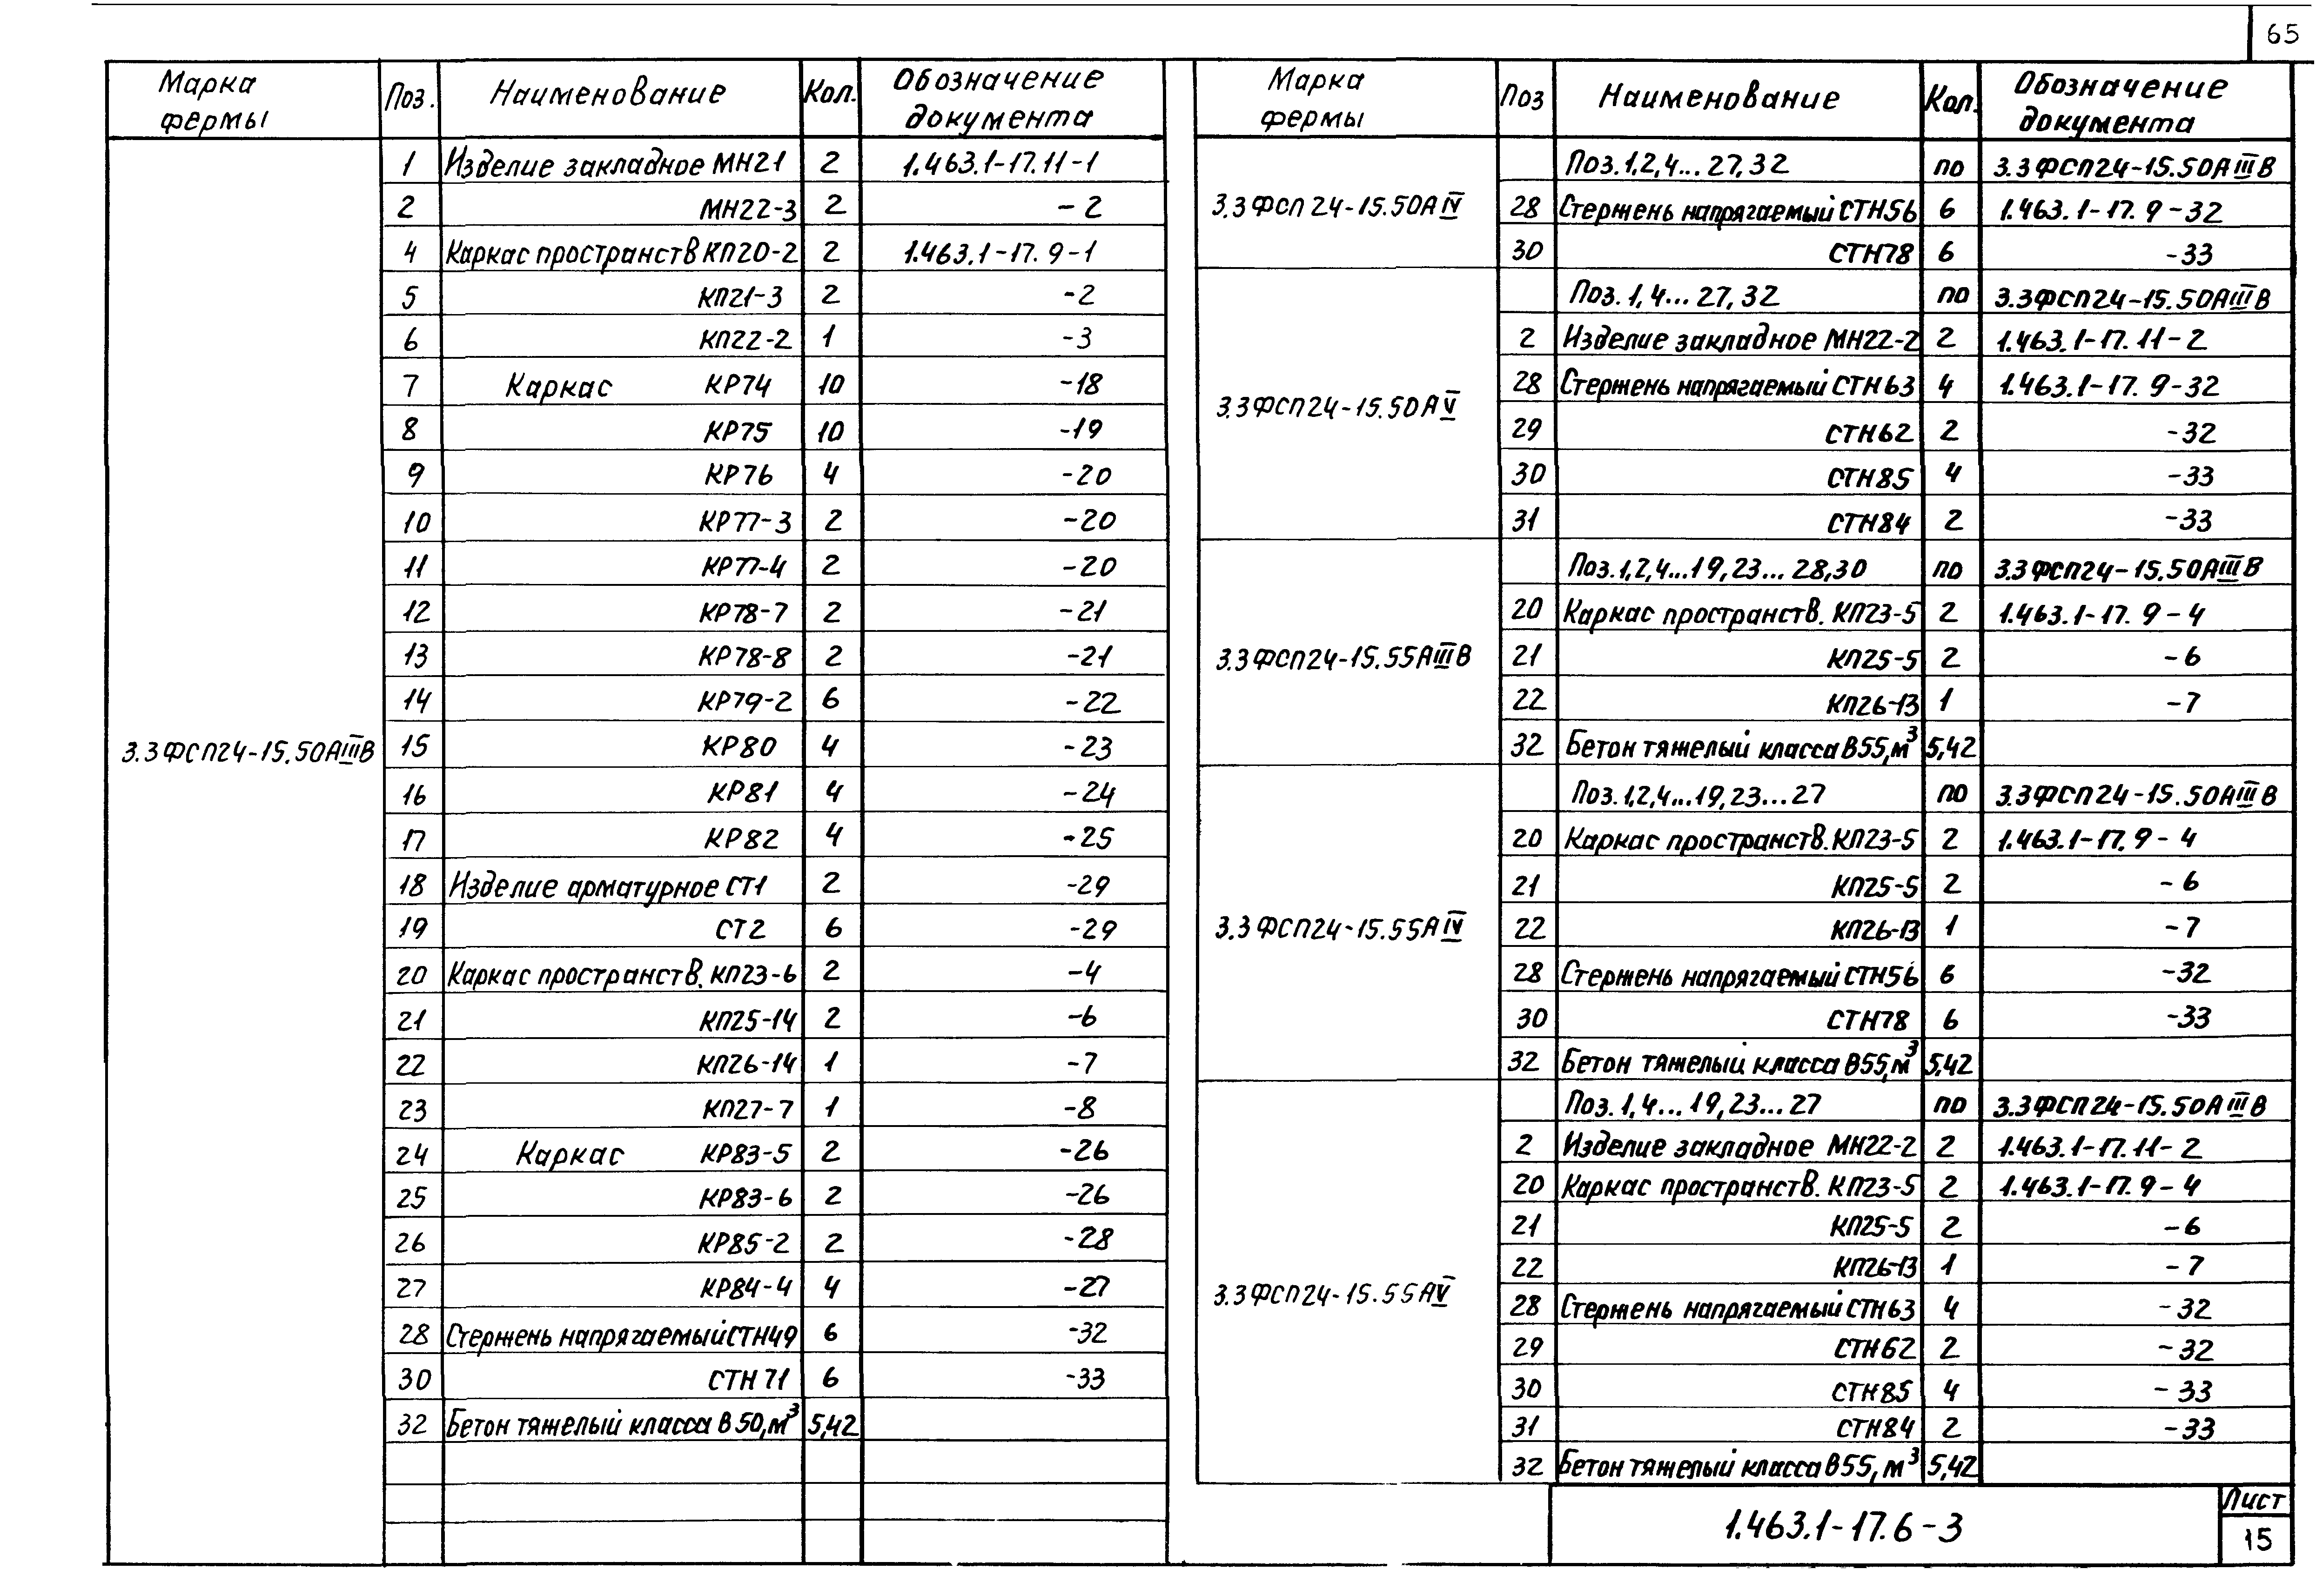 65
Марка фермы | Поз. | Наименование | Кол. | Обозначение документа
3.3ФСП24-15.50АIIIВ
1 | Изделие закладное МН21 | 2 | 1.463.1-17.11-1
2 | МН22-3 | 2 | -2
4 | Каркас пространств КП20-2 | 2 | 1.463.1-17.9-1
5 | КП21-3 | 2 | -2
6 | КП22-2 | 1 | -3
7 | Каркас КР74 | 10 | -18
8 | КР75 | 10 | -19
9 | КР76 | 4 | -20
10 | КР77-3 | 2 | -20
11 | КР77-4 | 2 | -20
12 | КР78-7 | 2 | -21
13 | КР78-8 | 2 | -21
14 | КР79-2 | 6 | -22
15 | КР80 | 4 | -23
16 | КР81 | 4 | -24
17 | КР82 | 4 | -25
18 | Изделие арматурное СТ1 | 2 | -29
19 | СТ2 | 6 | -29
20 | Каркас пространств. КП23-6 | 2 | -4
21 | КП25-14 | 2 | -6
22 | КП26-14 | 1 | -7
23 | КП27-7 | 1 | -8
24 | Каркас КР83-5 | 2 | -26
25 | КР83-6 | 2 | -26
26 | КР85-2 | 2 | -28
27 | КР84-4 | 4 | -27
28 | Стержень напрягаемый СТН49 | 6 | -32
30 | СТН71 | 6 | -33
32 | Бетон тяжелый класса В50, м³ | 5,42
Марка фермы | Поз | Наименование | Кол. | Обозначение документа
3.3ФСП24-15.50АIV
Поз. 1,2,4...27,32 | по | 3.3ФСП24-15.50АIIIВ
28 | Стержень напрягаемый СТН56 | 6 | 1.463.1-17.9-32
30 | СТН78 | 6 | -33
3.3ФСП24-15.50АV
Поз. 1,4...27,32 | по | 3.3ФСП24-15.50АIIIВ
2 | Изделие закладное МН22-2 | 2 | 1.463.1-17.11-2
28 | Стержень напрягаемый СТН63 | 4 | 1.463.1-17.9-32
29 | СТН62 | 2 | -32
30 | СТН85 | 4 | -33
31 | СТН84 | 2 | -33
3.3ФСП24-15.55АIIIВ
Поз. 1,2,4...19,23...28,30 | по | 3.3ФСП24-15.50АIIIВ
20 | Каркас пространств. КП23-5 | 2 | 1.463.1-17.9-4
21 | КП25-5 | 2 | -6
22 | КП26-13 | 1 | -7
32 | Бетон тяжелый класса В55, м³ | 5,42
3.3ФСП24-15.55АIV
Поз. 1,2,4...19,23...27 | по | 3.3ФСП24-15.50АIIIВ
20 | Каркас пространств. КП23-5 | 2 | 1.463.1-17.9-4
21 | КП25-5 | 2 | -6
22 | КП26-13 | 1 | -7
28 | Стержень напрягаемый СТН56 | 6 | -32
30 | СТН78 | 6 | -33
32 | Бетон тяжелый класса В55, м³ | 5,42
3.3ФСП24-15.55АV
Поз. 1,4...19,23...27 | по | 3.3ФСП24-15.50АIIIВ
2 | Изделие закладное МН22-2 | 2 | 1.463.1-17.11-2
20 | Каркас пространств. КП23-5 | 2 | 1.463.1-17.9-4
21 | КП25-5 | 2 | -6
22 | КП26-13 | 1 | -7
28 | Стержень напрягаемый СТН63 | 4 | -32
29 | СТН62 | 2 | -32
30 | СТН85 | 4 | -33
31 | СТН84 | 2 | -33
32 | Бетон тяжелый класса В55, м³ | 5,42
1.463.1-17.6-3
Лист
15